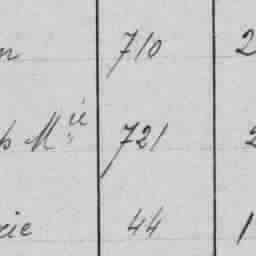 n 710 2
Mie 721 2
cie 44 1